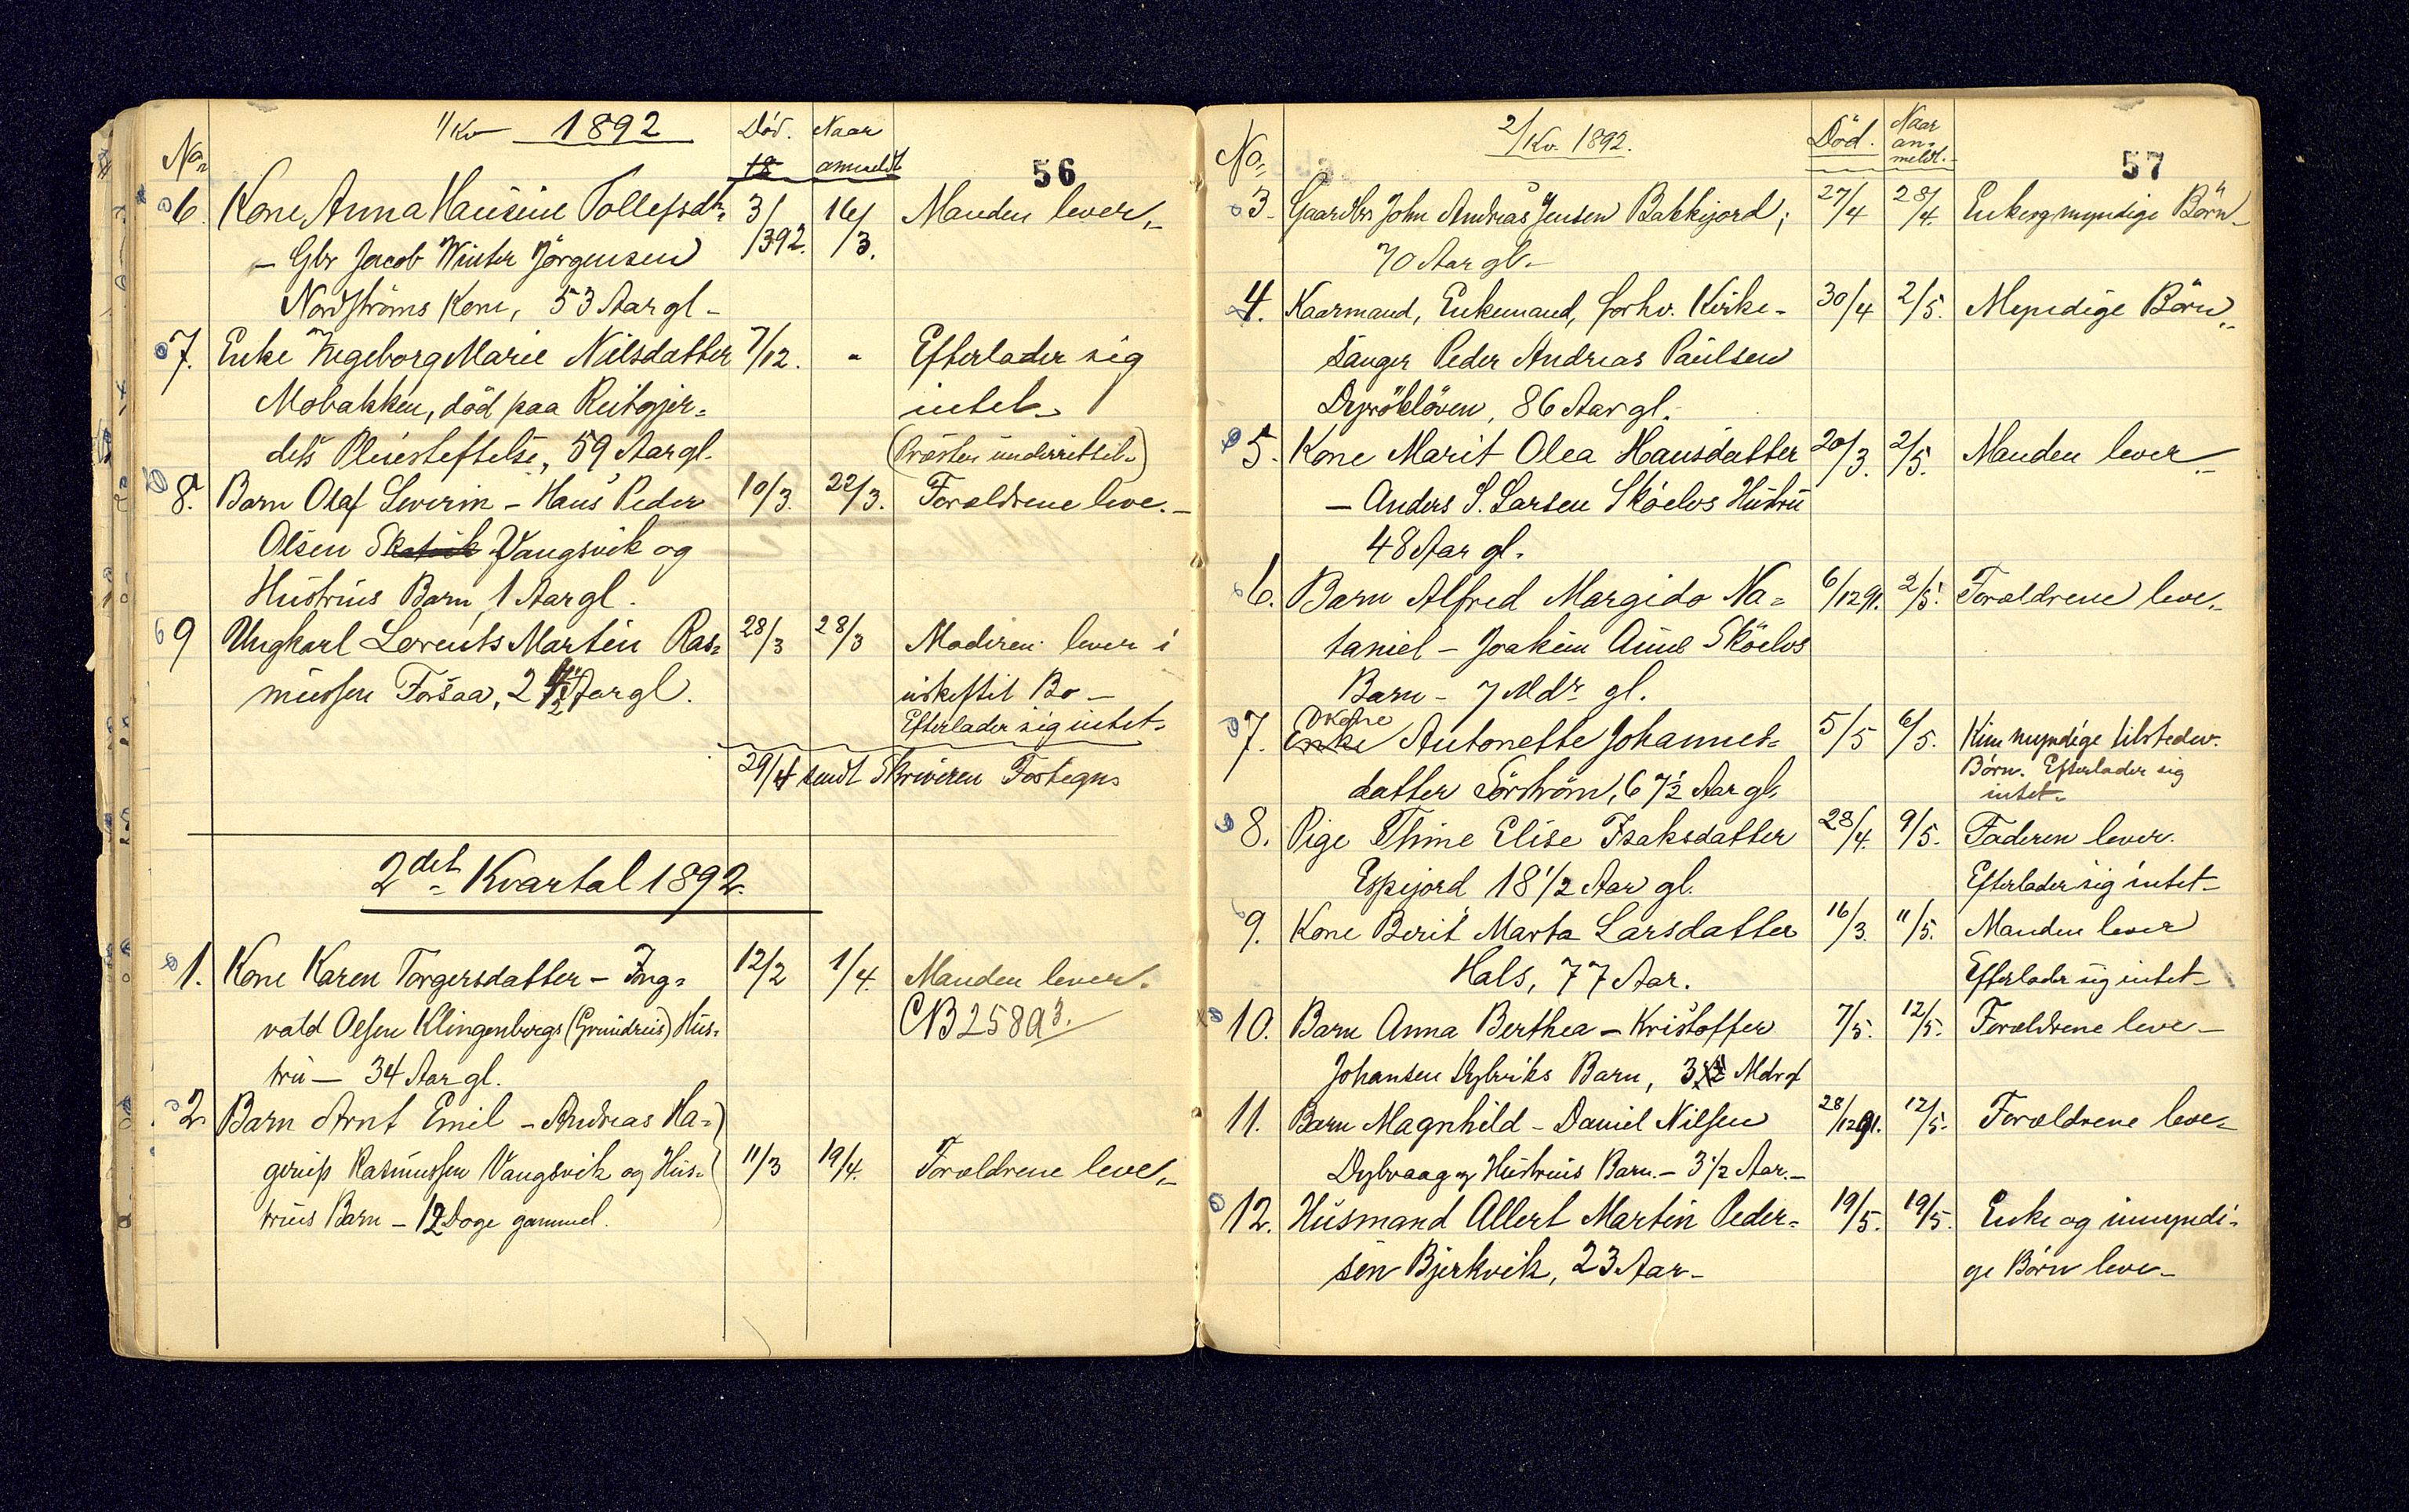 1/Kv 1892 Död. Naar
No. 18 anmeldt 56
6. Kone Anna Hansine Tollefsdtr. 3/392. 16/3. Manden lever.
- Gbr Jacob Winter Jörgensen
Nordströms Kone, 53 Aar gl -
7. Enke Ingeborg Marie Nilsdatter 7/12. - Efterlader sig
Mobakken, död paa Reitgjer- intet.
dets Pleiestiftelse, 59 Aar gl. (Præsten underrettet.)
8. Barn Olaf Severin - Hans Peder 10/3. 22/3. Forældrene leve.
Olsen Skatvik Vangsvik og
Hustrus Barn, 1 Aar gl.
9 Ungkarl Lorents Martin Ras- 28/3 28/3 Moderen lever i
mussen Forsaa, 2 Aar gl. uskiftet Bo -
Efterlader sig intet.
29/4 sendt Skriveren Fortegns
2det Kvartal 1892.
1. Kone Karen Torgersdatter - Ing- 12/2 1/4. Manden lever.
vald Olsen Klingenbergs (Grundreis) Hus- CNB 258 a 3.
tru - 34 Aar gl.
2 Barn Arnt Emil - Andreas Ha-
gerup Rasmussen Vangsvik og Hus- 11/3 19/4. Forældrene leve.
trus Barn - 12 Dage gammel.
2/Kv. 1892. Död. Naar an-
No. meldt. 57
3. Gaardbr. John Andreas Jensen Bakkejord; 27/4 28/4. Enke og myndige Börn
70 Aar gl.
4. Kaarmand, Enkemand, forhv. Kirke- 30/4 2/5. Myndige Börn
sanger Peder Andreas Paulsen
Dyröklöven, 86 Aar gl.
5. Kone Marit Olea Hansdatter 20/3. 2/5. Manden lever
- Anders S. Larsen Sköelvs Hustru
48 Aar gl.
6. Barn Alfred Margido Na- 6/12 91. 2/5. Forældrene leve.
taniel - Joakim Aune Sköelvs
Barn - 7 Mdr gl.
Kone
7. Enke Antonette Johannes- 5/5 6/5. Kun myndige tilstedev.
datter Sörström, 67½ Aar gl. Börn. Efterlader sig
intet.
8. Pige Thine Elise Isaksdatter 28/4. 9/5. Faderen lever.
Espejord 18 1/2 Aar gl. Efterlader sig intet
9. Kone Berit Marta Larsdatter 16/3. 11/5. Manden lever
Hals, 77 Aar. Efterlader sig intet
10. Barn Anna Berthea - Kristoffer 7/5. 12/5. Forældrene leve
Johansen Dybviks Barn, 3 Mdr gl
11. Barn Magnhild - Daniel Nilsen 28/12 91. 12/5. Forældrene leve
Dybvaag og Hustrus Barn. - 3 1/2 Aar.
12. Husmand Allert Martin Peder- 19/5. 19/5. Enke og umyndi-
sen Bjerkvik, 23 Aar - ge Börn leve